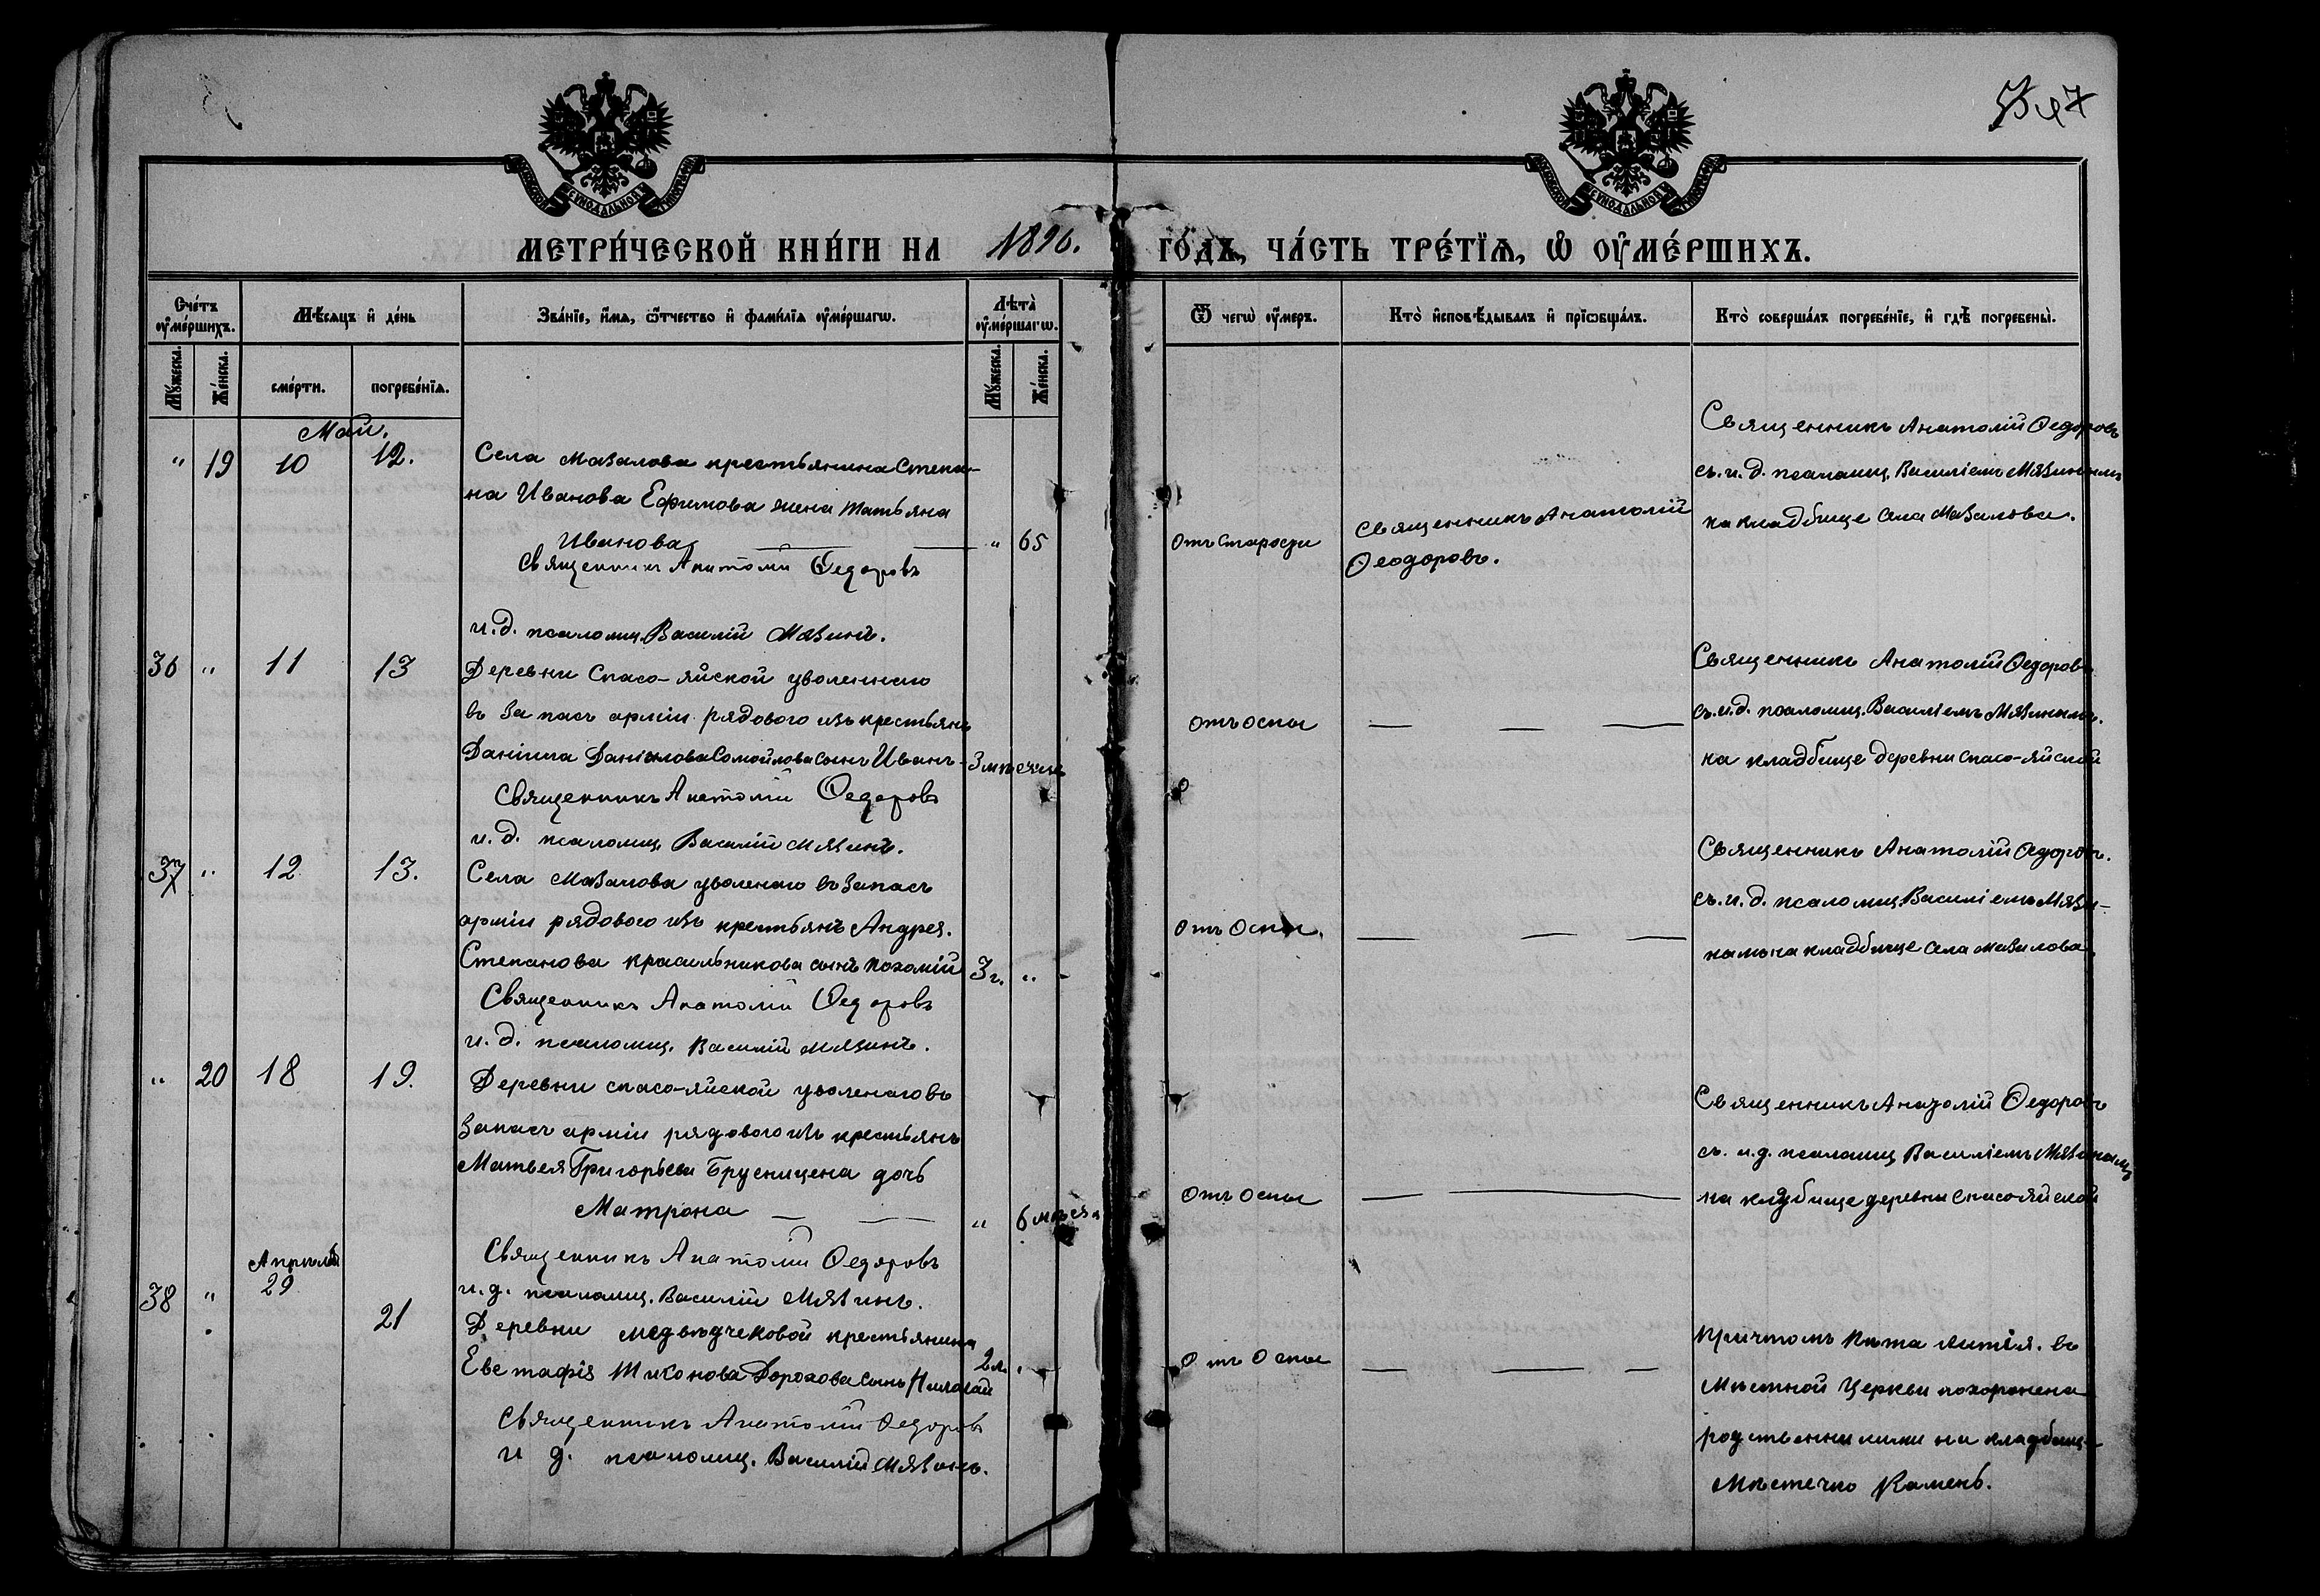 МЕТРИ́ЧЕСКОЙ КНИ́ГИ НА 1896. ГО́ДЪ, ЧА́СТЬ ТРЕ́ТІѦ, Ѡ ОУ҆МЕ́РШИХЪ.
Сче́тъ оу҆ме́ршихъ.
Мѣ́сѧцъ и҆ де́нь
Зва́нїе, и҆́мѧ, ѻ҆́тчество и҆ фами́лїѧ оу҆ме́ршагѡ.
Лѣ́та оу҆ме́ршагѡ.
Ѿ чегѡ̀ оу҆́меръ.
Кто̀ и҆сповѣ́дывалъ и҆ прїѡбща́лъ.
Кто̀ соверша́лъ погребе́нїе, и҆ гдѣ̀ погребены̀.
Мꙋ́жеска.
Же́нска.
сме́рти.
погребе́нїѧ.
Мꙋ́жеска.
Же́нска.
Май.
" 19 10 12.
Села Мазалова крестьянина Степа-
на Иванова Ефимова жена Татьяна
Иванова — — " 65
Священникъ Анатолій Ѳедоровъ
и.д. псаломщ. Василій Мязинъ.
отъ старости
Священникъ Анатолій
Ѳеодоровъ.
Священникъ Анатолій Ѳедоровъ
съ и.д. псаломщ. Василіемъ Мязинымъ
на кладбище села Мазалова.
36 " 11 13
Деревни Спасо-Яйской уволеннаго
въ запасъ арміи рядового изъ крестьянъ
Даніила Даніилова Самойлова сынъ Иванъ - 3 мѣсяца
Священникъ Анатолій Ѳедоровъ
и.д. псаломщ. Василій Мязинъ.
отъ оспы — — —
Священникъ Анатолій Ѳедоровъ
съ и.д. псаломщ. Василіемъ Мязинымъ.
на кладбище деревни Спасо-Яйской
37 " 12 13.
Села Мазалова уволенаго въ запасъ
арміи рядового изъ крестьянъ Андрея.
Степанова Красильникова сынъ Пахомій 3 г. "
Священникъ Анатолій Ѳедоровъ
и.д. псаломщ. Василій Мязинъ.
отъ оспы. — — —
Священникъ Анатолій Ѳедоровъ.
съ и.д. псаломщ. Василіемъ Мязи-
нымъ на кладбище села Мазалова.
" 20 18 19.
Деревни Спасо-Яйской уволенаго въ
запасъ арміи рядового изъ крестьянъ
Матвея Григорьева Брусницена дочь
Матрона — — " 6 мѣсяц
Священникъ Анатолій Ѳедоровъ
и.д. псаломщ. Василій Мязинъ.
отъ оспы — —
Священникъ Анатолій Ѳедоровъ
съ и.д. псаломщ Василіемъ Мязинымъ
на кладбище деревни Спасо Яйской
Апрѣль
38 " 29 21
Деревни Медвѣдчековой крестьянина
Евстафія Тихонова Дорохова сынъ Николай 2 л. "
Священникъ Анатолій Ѳедоровъ
и д. псаломщ. Василій Мязинъ.
отъ оспы — — —
Причтомъ литія. въ
Мѣстной Церкви похоронена
родственниками на кладбище
Мѣстечко Камень.